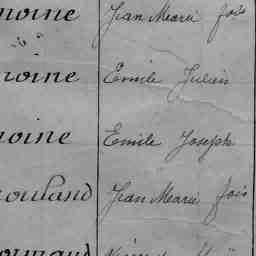 moine Jean Marie fois
moine Emile Julien
moine Emile Joseph
rouland Jean Marie fois